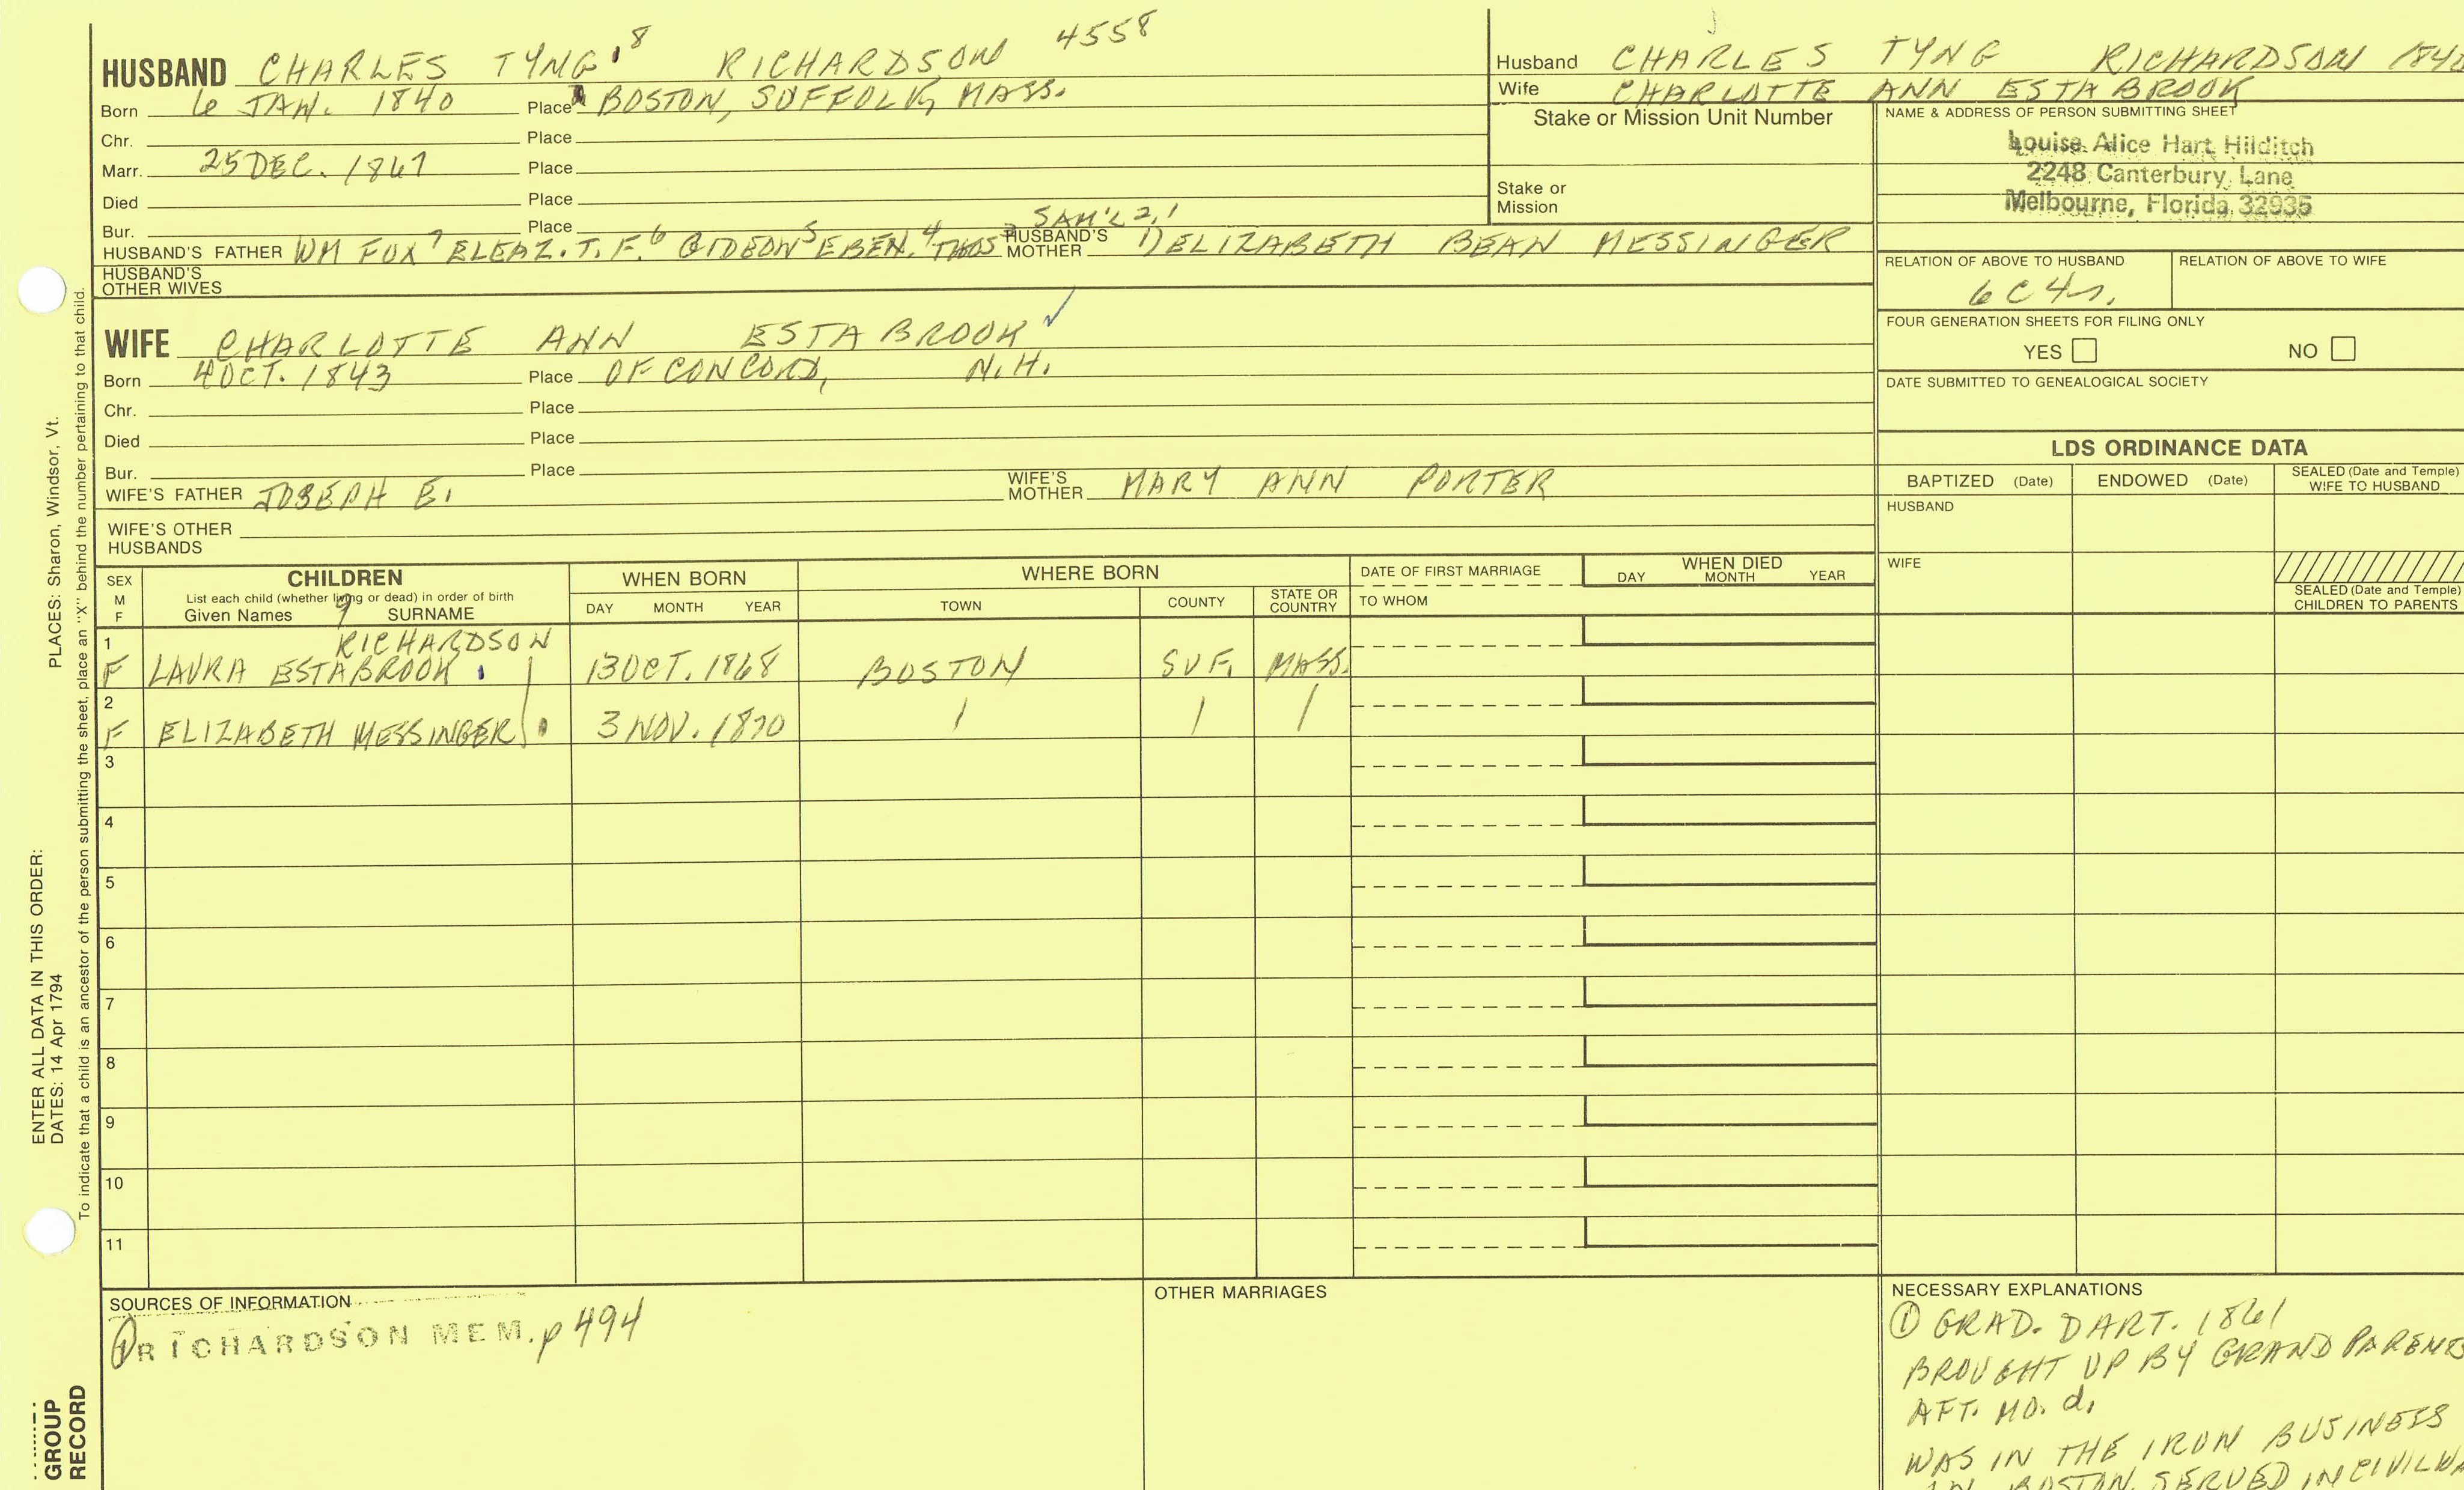 HUSBAND CHARLES TYNG 8 RICHARDSON 4558
Born 6 JAN. 1840 Place BOSTON, SUFFOLK, MASS.
Chr. Place
Marr. 25 DEC. 1867 Place
Died Place
Bur. Place
SAM'L 2,1
HUSBAND'S FATHER WM FOX 7 ELEAZ. T. F. 6 GIDEON 5 EBEN. 4 THOS 3 HUSBAND'S MOTHER 1) ELIZABETH BEAN MESSINGER
HUSBAND'S OTHER WIVES
WIFE CHARLOTTE ANN ESTABROOK ✓
Born 4 OCT. 1843 Place OF CONCORD, N.H.
Chr. Place
Died Place
Bur. Place
WIFE'S FATHER JOSEPH E. WIFE'S MOTHER MARY ANN PORTER
WIFE'S OTHER HUSBANDS
Husband CHARLES TYNG RICHARDSON 1840
Wife CHARLOTTE ANN ESTABROOK
Stake or Mission Unit Number
Stake or Mission
NAME & ADDRESS OF PERSON SUBMITTING SHEET
Louise Alice Hart Hilditch
2248 Canterbury Lane
Melbourne, Florida 32935
RELATION OF ABOVE TO HUSBAND RELATION OF ABOVE TO WIFE
6C4r.
FOUR GENERATION SHEETS FOR FILING ONLY
YES NO
DATE SUBMITTED TO GENEALOGICAL SOCIETY
LDS ORDINANCE DATA
BAPTIZED (Date) ENDOWED (Date) SEALED (Date and Temple) WIFE TO HUSBAND
HUSBAND
WIFE
SEALED (Date and Temple) CHILDREN TO PARENTS
SEX M F CHILDREN WHEN BORN WHERE BORN DATE OF FIRST MARRIAGE WHEN DIED
List each child (whether living or dead) in order of birth
Given Names 9 SURNAME DAY MONTH YEAR TOWN COUNTY STATE OR COUNTRY TO WHOM DAY MONTH YEAR
1 RICHARDSON
F LAURA ESTABROOK 13 OCT. 1868 BOSTON SUF. MASS.
2
F ELIZABETH MESSINGER 3 NOV. 1870 / / /
3
4
5
6
7
8
9
10
11
SOURCES OF INFORMATION
① RICHARDSON MEM. p 494
OTHER MARRIAGES
NECESSARY EXPLANATIONS
① GRAD. DART. 1861
BROUGHT UP BY GRAND PARENTS
AFT. MO. d.
WAS IN THE IRON BUSINESS
IN BOSTON. SERVED IN CIVIL
PLACES: Sharon, Windsor, Vt.
To indicate that a child is an ancestor of the person submitting the sheet, place an "X" behind the number pertaining to that child.
ENTER ALL DATA IN THIS ORDER:
DATES: 14 Apr 1794
GROUP
RECORD